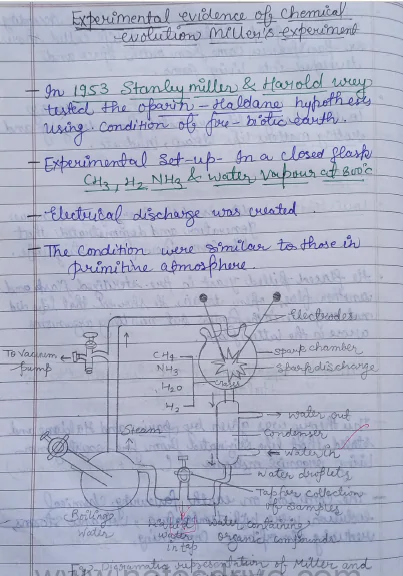 Experimental evidence of Chemical
evolution Miller's experiment
- In 1953 Stanley miller & Harold urey
tested the oparin - Haldane hypothesis
using condition of pre-biotic earth.
- Experimental Set-up- In a closed flask
CH3, H2 NH3 & water vapour at 800°c
- Electrical discharge was created.
- The Condition were similar to those in
primitive atmosphere.
Electrodes
To vacuum
pump
CH4
NH3
H2O
H2
spark chamber
spark discharge
Steam
water out
Condenser
water in
water droplets
Tapper collection
of samples
Boiling
water
water
in tap
water containing
organic compounds
Diagramatic representation of Miller and